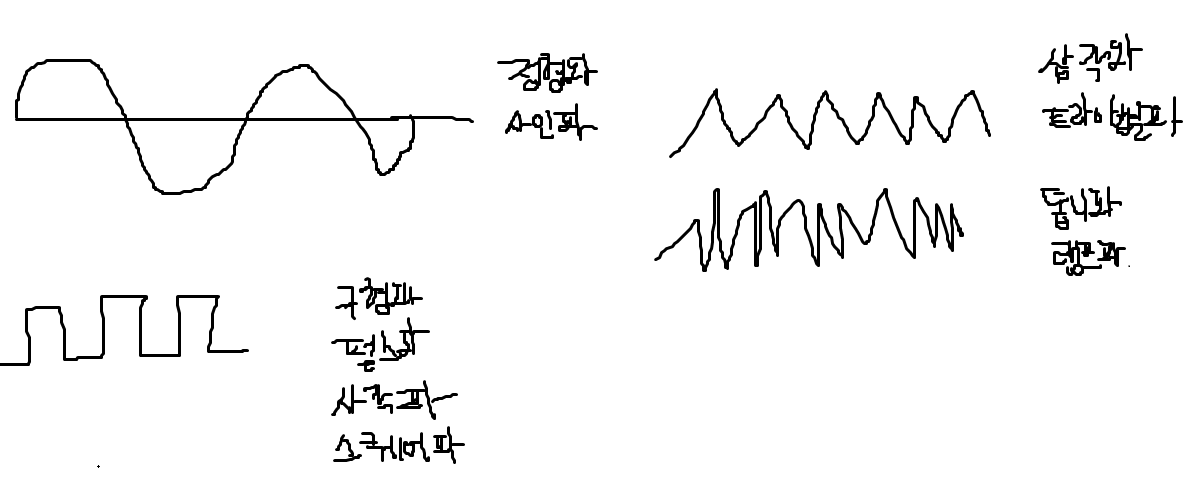 정형파
사인파
삼각파
트라이앵글파
톱니파
램프파
구형파
펄스파
사각파
스퀘어파